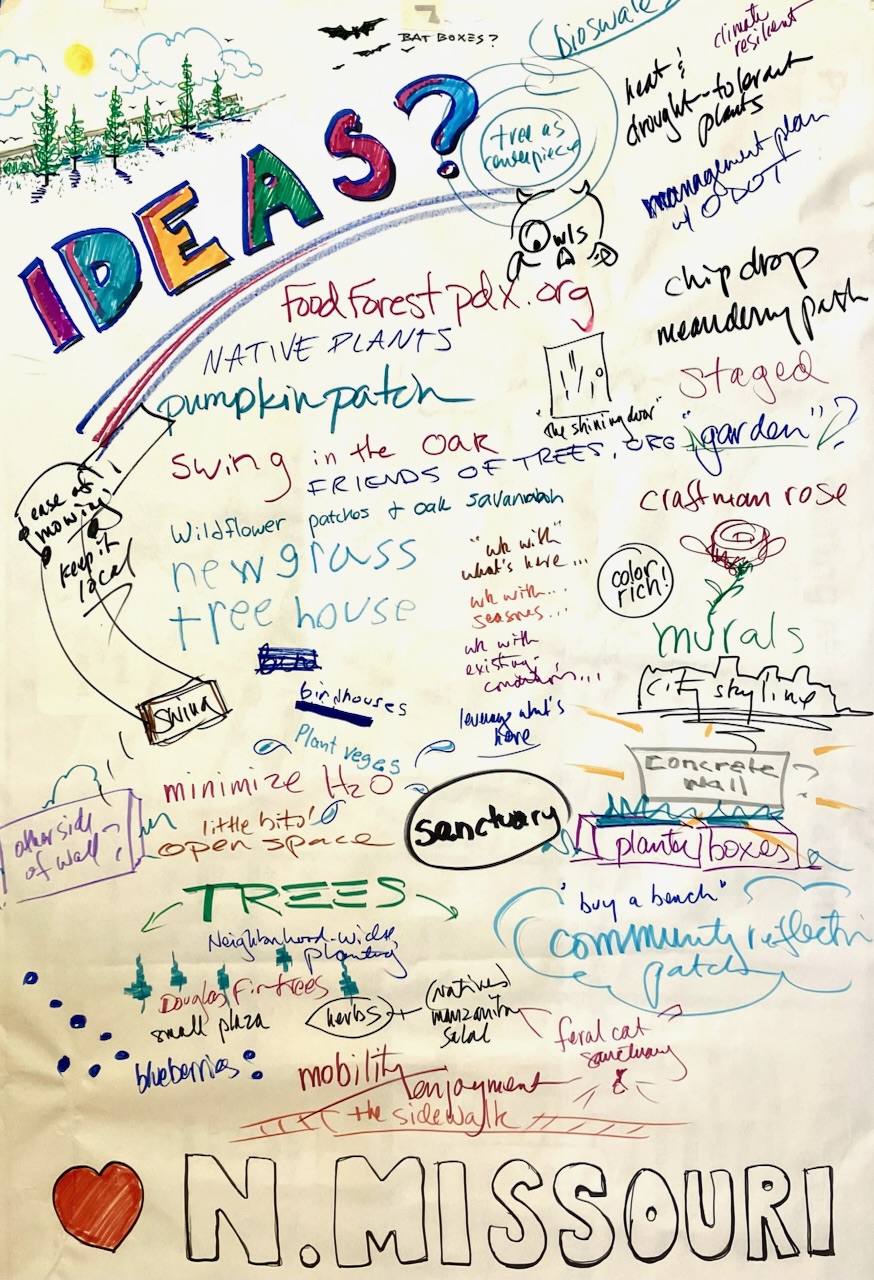 BAT BOXES?
bioswale
climate
resilient
heat &
drought-tolerant
plants
tree as
centerpiece
IDEAS?
management plan
w/ ODOT
Owls
chip drop
meandering path
foodforestpdx.org
NATIVE PLANTS
pumpkin patch
"the shining door"
staged
"garden"?
swing in the oak
FRIENDS OF TREES.ORG
craftman rose
ease of
mowing!
keep it
local
Wildflower patches + oak savannah
new grass
"wk with"
what's here...
color
rich!
tree house
wk with...
seasons...
murals
wk with
existing
condition...
city skyline
birdhouses
leverage what's
here
swing
Plant veges
Concrete
wall ?
minimize H2O
sanctuary
other side
of wall?
little bits!
open space
planty boxes
TREES
"buy a bench"
community reflectn
patch
Neighborhood-wide
planting
Douglas fir trees
small plaza
herbs +
(natives)
manzanita
salal
feral cat
sanctuary
blueberries
mobility
enjoyment
the sidewalk
N. MISSOURI